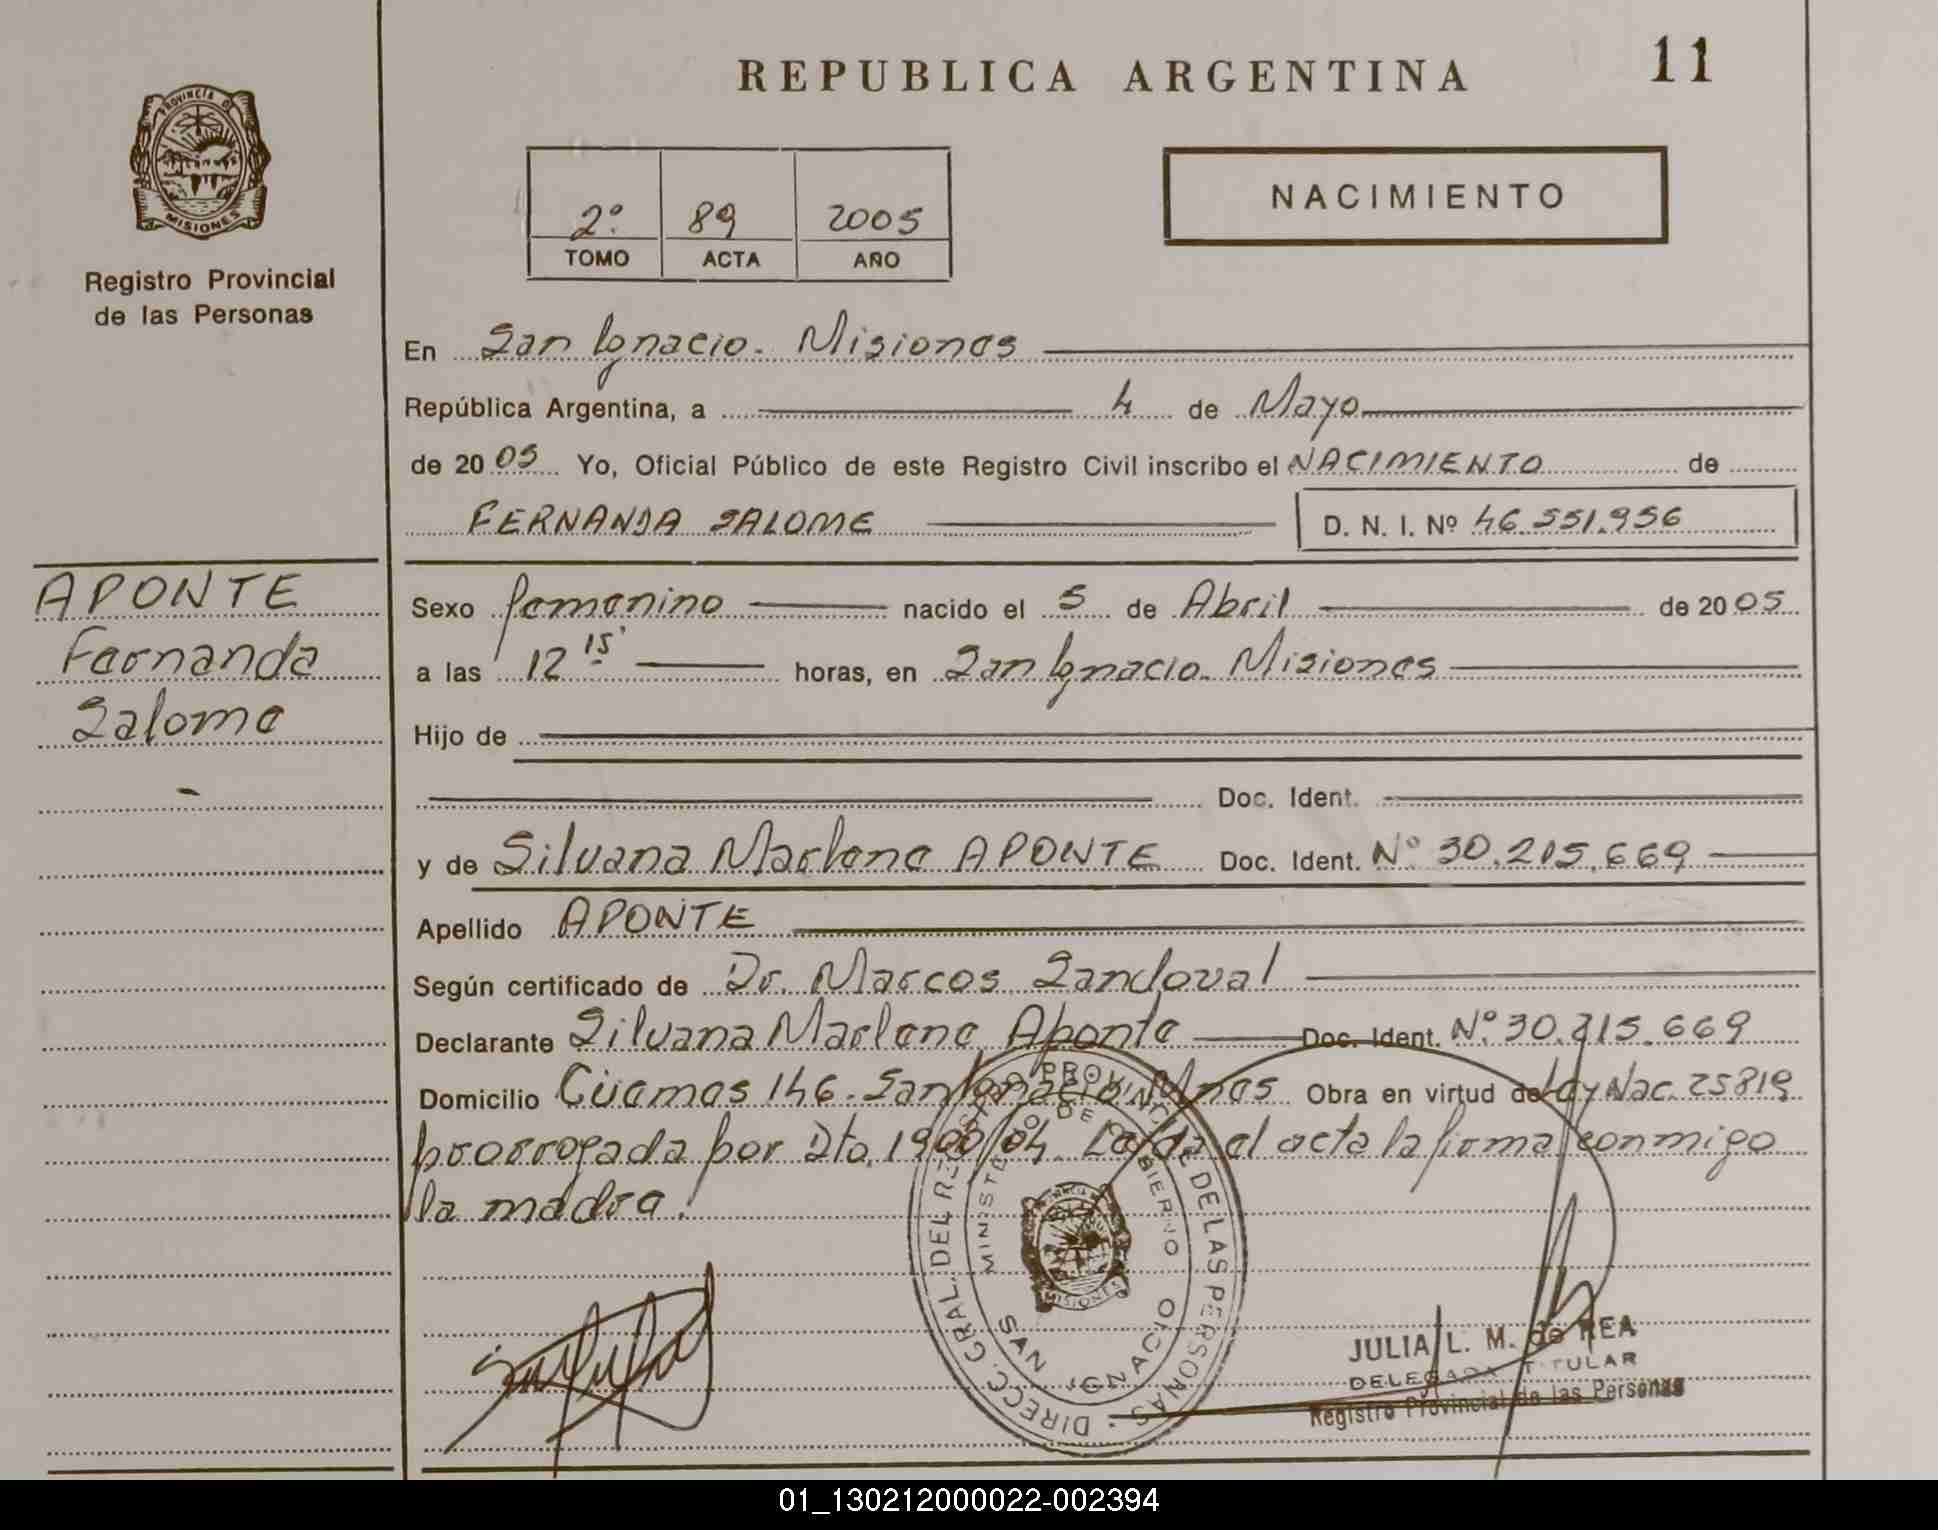 REPUBLICA ARGENTINA
11
PROVINCIA DE
MISIONES
Registro Provincial
de las Personas
2º
89
2005
TOMO
ACTA
AÑO
NACIMIENTO
En San Ignacio. Misiones
República Argentina, a 4 de Mayo
de 2005 Yo, Oficial Público de este Registro Civil inscribo el NACIMIENTO de
FERNANDA SALOME D. N. I. Nº 46.551.956
APONTE
Fernanda
Salome
Sexo femenino nacido el 5 de Abril de 2005
a las 12 15' horas, en San Ignacio. Misiones
Hijo de
Doc. Ident.
y de Silvana Marlene APONTE Doc. Ident. Nº 30.215.669
Apellido APONTE
Según certificado de Dr. Marcos Sandoval
Declarante Silvana Marlene Aponte Doc. Ident. Nº 30.215.669
Domicilio Güemes 146. San Ignacio, Mnes Obra en virtud de Ley Nac. 25819
prorrogada por Dto. 1900/04. Leída el acta la firma conmigo
la madre.
DIRECC. GRAL. DEL REGISTRO PROVINCIAL DE LAS PERSONAS
MINISTERIO DE GOBIERNO
SAN IGNACIO
MISIONES
JULIA L. M. de REA
DELEGADA TITULAR
Registro Provincial de las Personas
01_130212000022-002394